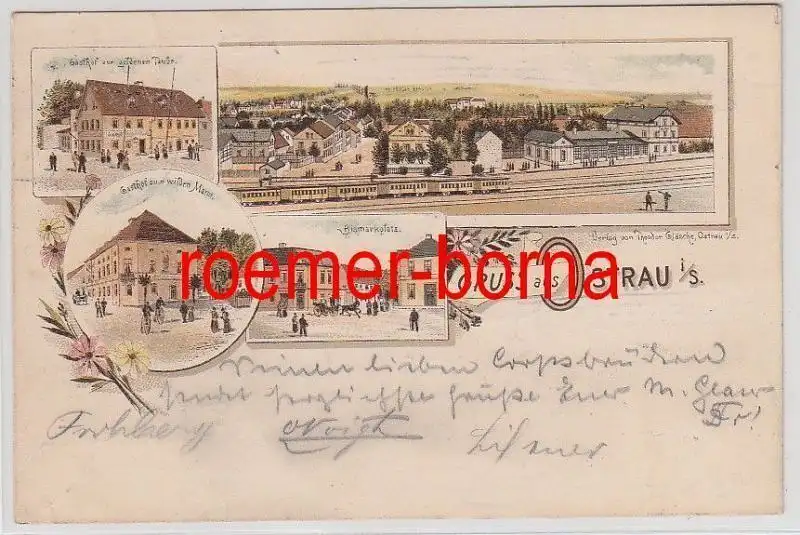 Gasthof zur goldenen Taube.
Gasthof zum wilden Mann.
Bismarkplatz.
Verlag von Theodor Gläsche, Ostrau i/s.
GRUSS aus OSTRAU i/S.
roemer-borna
Meinen lieben Corpsbrüdern
sendet herzlichste Grüße Euer M.
Frohberg Voigt